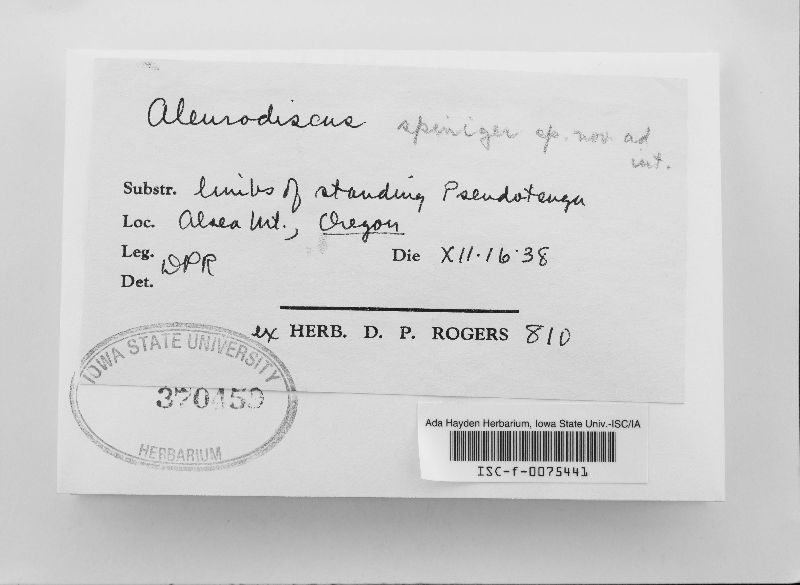 Aleurodiscus spiniger sp. nov. ad int.
Substr. limbs of standing Pseudotsuga
Loc. Alsea Mt., Oregon
Leg. DPR Die XII·16·38
Det.
ex HERB. D. P. ROGERS 810
IOWA STATE UNIVERSITY
370459
HERBARIUM
Ada Hayden Herbarium, Iowa State Univ.-ISC/IA
ISC-f-0075441